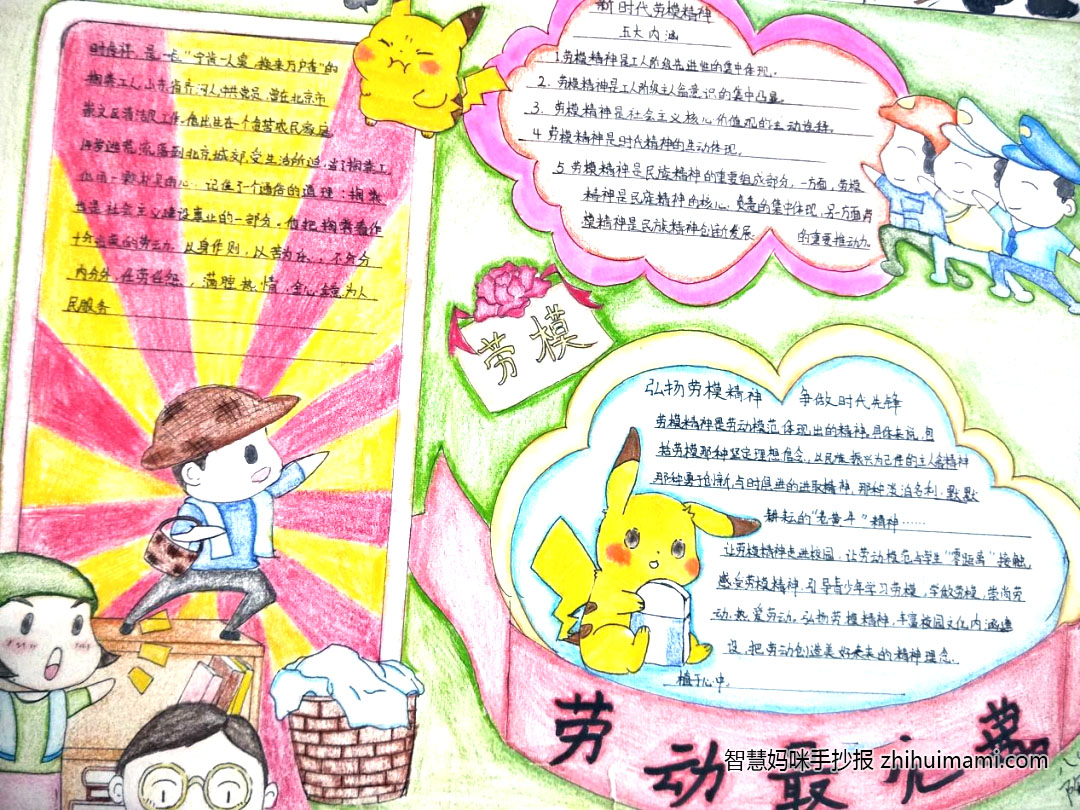 时传祥，是一位“宁肯一人臭，换来万户香”的
掏粪工人，山东省齐河人中共党员，曾在北京市
崇文区清洁队工作。他出生在一个贫苦农民家庭
逃荒流落到北京城郊，受生活所迫，当了掏粪工
记住了一个通俗的道理：掏粪
也是社会主义建设事业的一部分。他把掏粪看作
十分光荣的劳动，以身作则，以苦为乐，不分分
内分外，任劳任怨，满腔热情，全心全意为人
民服务
新时代劳模精神
五大内涵
1.劳模精神是工人阶级先进性的集中体现。
2.劳模精神是工人阶级主人翁意识的集中凸显。
3.劳模精神是社会主义核心价值观的生动诠释。
4劳模精神是时代精神的生动体现。
5劳模精神是民族精神的重要组成部分，一方面，劳模
精神是民族精神的核心、要素的集中体现，另一方面劳
模精神是民族精神创新发展
的重要推动力。
劳模
弘扬劳模精神 争做时代先锋
劳模精神是劳动模范体现出的精神，具体来说，包
括劳模那种坚定理想信念，以民族振兴为己任的主人翁精神
那种勇于创新，与时俱进的进取精神，那种淡泊名利，默默
耕耘的“老黄牛”精神……
让劳模精神走进校园，让劳动模范与学生“零距离”接触，
感受劳模精神，引导青少年学习劳模，学做劳模，崇尚劳
动，热爱劳动。弘扬劳模精神，丰富校园文化内涵建
设，把劳动创造美好未来的精神理念，
植于心中。
劳动最光荣
智慧妈咪手抄报 zhihuimami.com